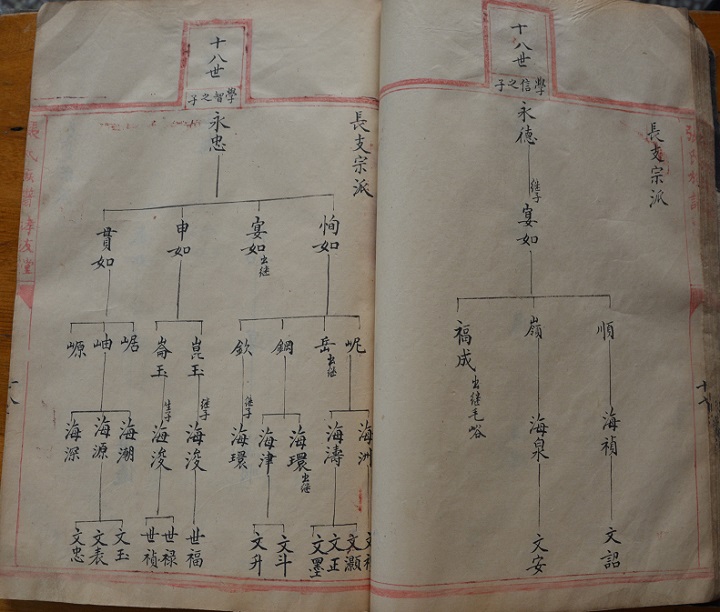 十八世
學信之子
長支宗派
永德
继子
宴如
順
嶺
福成
出继毛峪
海禎
海泉
文詔
文安
十八世
學智之子
長支宗派
永忠
恂如
宴如
出继
申如
貫如
岘
岳
出继
鋼
欽
崑玉
崙玉
崌
岫
嫄
继子
继子
生子
海洲
海濤
海環
出继
海津
海環
海浚
海浚
海潮
海源
海深
文灝
文正
文墨
文斗
文升
世福
世禄
世禎
文玉
文表
文忠